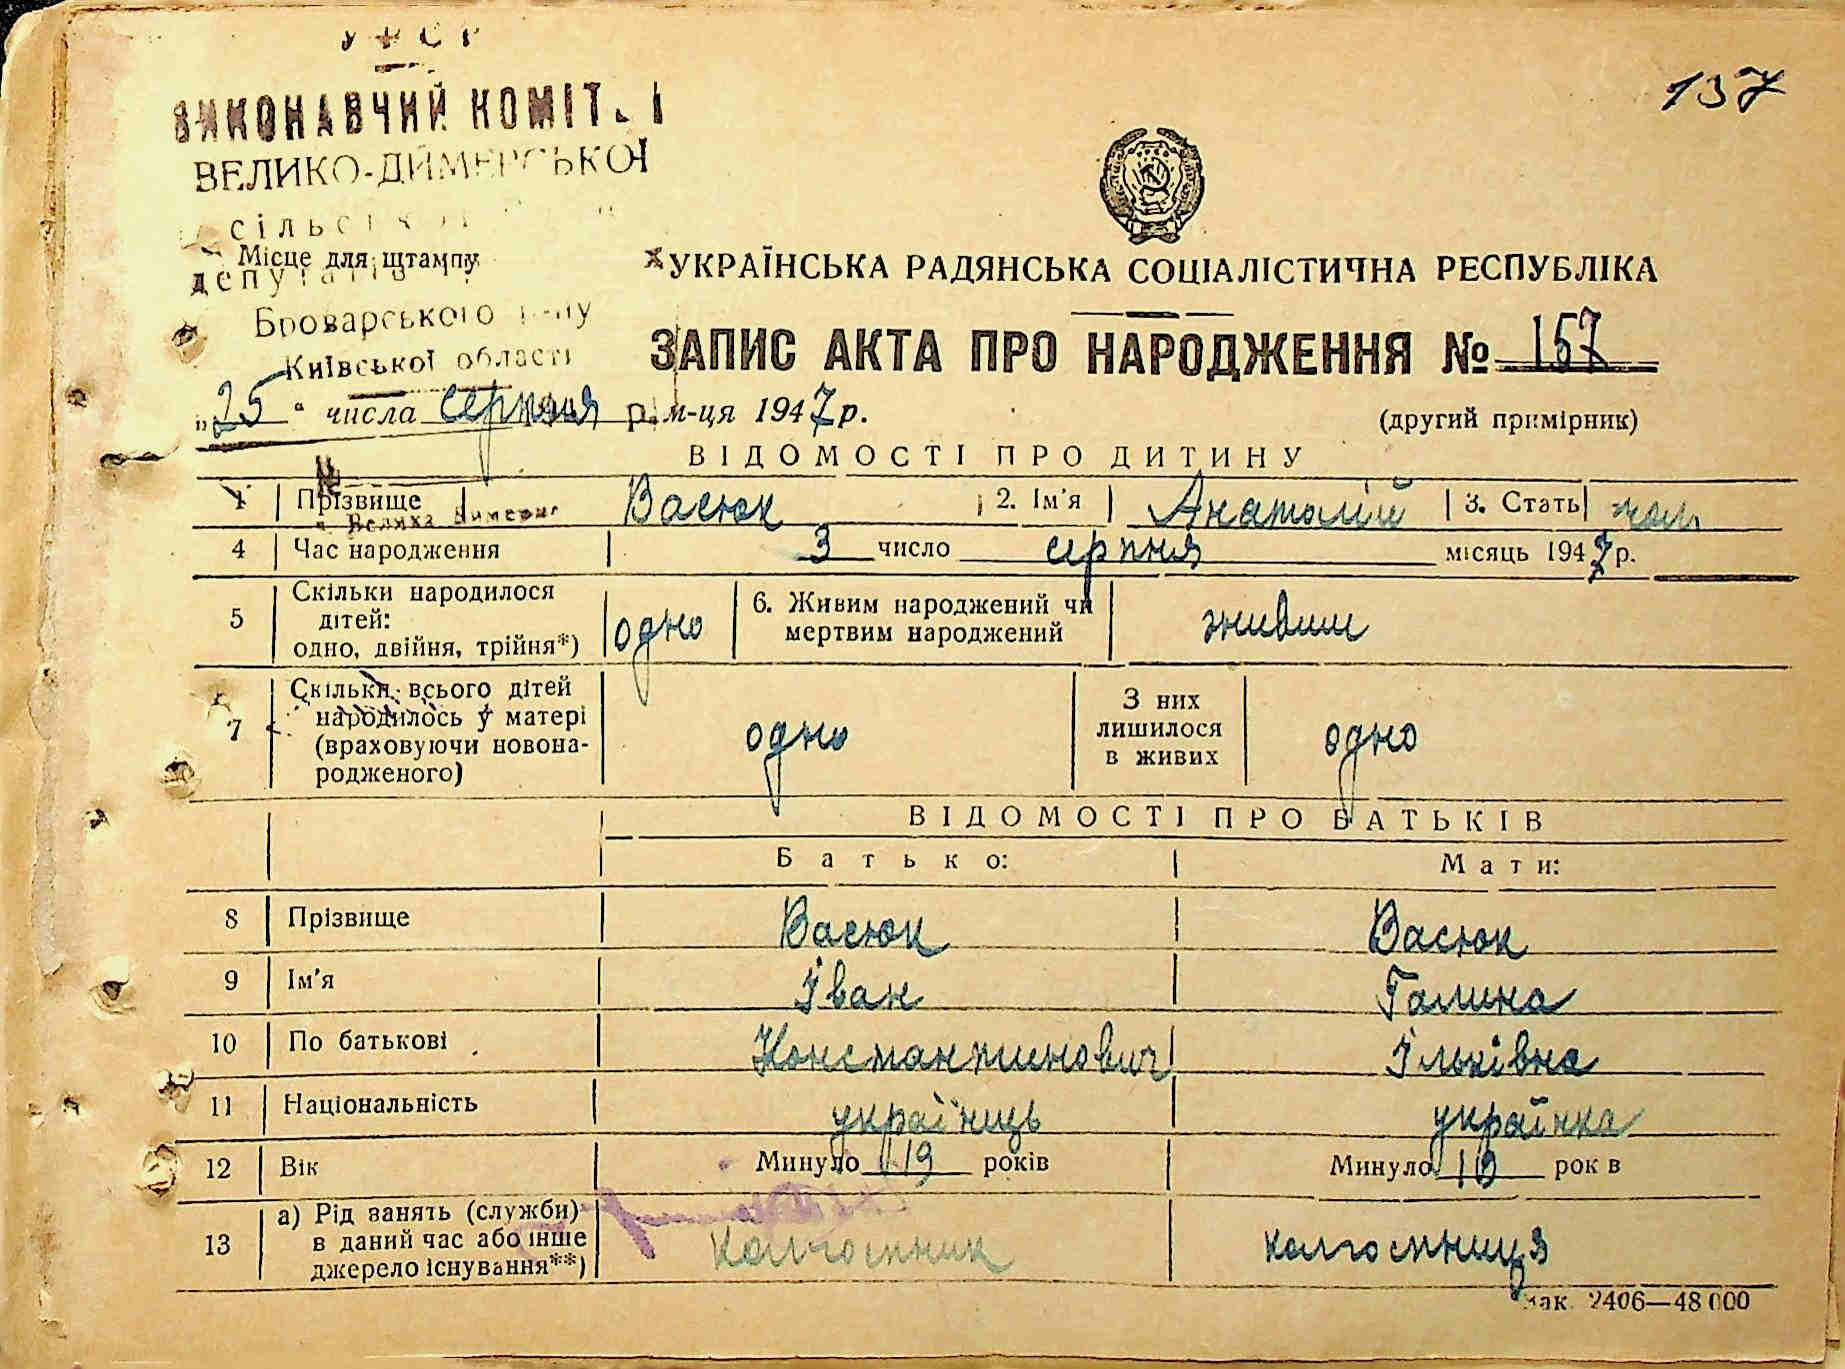 УРСР
137
ВИКОНАВЧИЙ КОМІТЕТ
ВЕЛИКО-ДИМЕРСЬКОЇ
сільської
Місце для штампу
депутатів
Броварського р-ну
Київської області
УКРАЇНСЬКА РАДЯНСЬКА СОЦІАЛІСТИЧНА РЕСПУБЛІКА
ЗАПИС АКТА ПРО НАРОДЖЕННЯ № 157
„25“ числа серпня м-ця 1947 р.
(другий примірник)
ВІДОМОСТІ ПРО ДИТИНУ
1 Прізвище Васюк 2. Ім'я Анатолій 3. Стать чол
с. Велика Димерка
4 Час народження 3 число серпня місяць 1947 р.
5 Скільки народилося дітей: одно, двійня, трійня*) одно 6. Живим народжений чи мертвим народжений живим
7 Скільки всього дітей народилось у матері (враховуючи новонародженого) одно З них лишилося в живих одно
ВІДОМОСТІ ПРО БАТЬКІВ
Батько: Мати:
8 Прізвище Васюк Васюк
9 Ім'я Іван Галина
10 По батькові Константинович Ільківна
11 Національність українець українка
12 Вік Минуло 19 років Минуло 19 рок в
13 а) Рід занять (служби) в даний час або інше джерело існування**) колгоспник колгоспниця
Зак. 2406—48 000